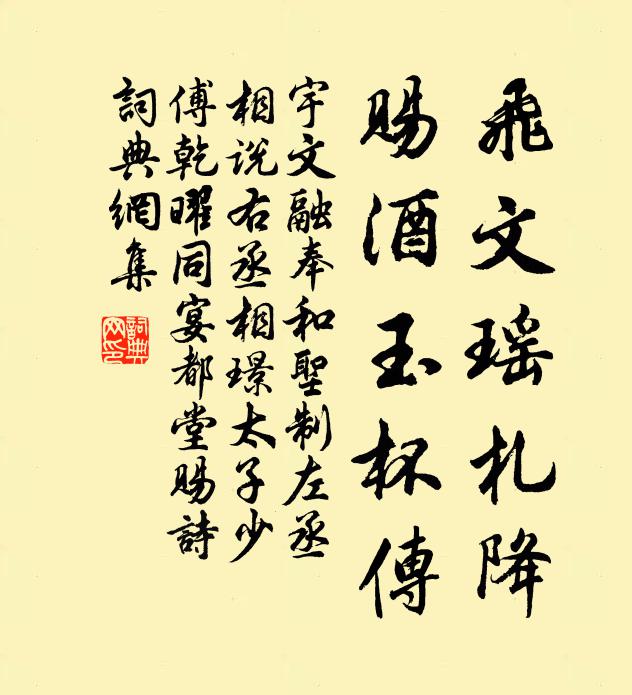 飛文瑶札降
賜酒玉杯傳
宇文融奉和聖制左丞
相说右丞相璟太子少
傅乾曜同宴都堂賜詩
詞典網集
詞典网印